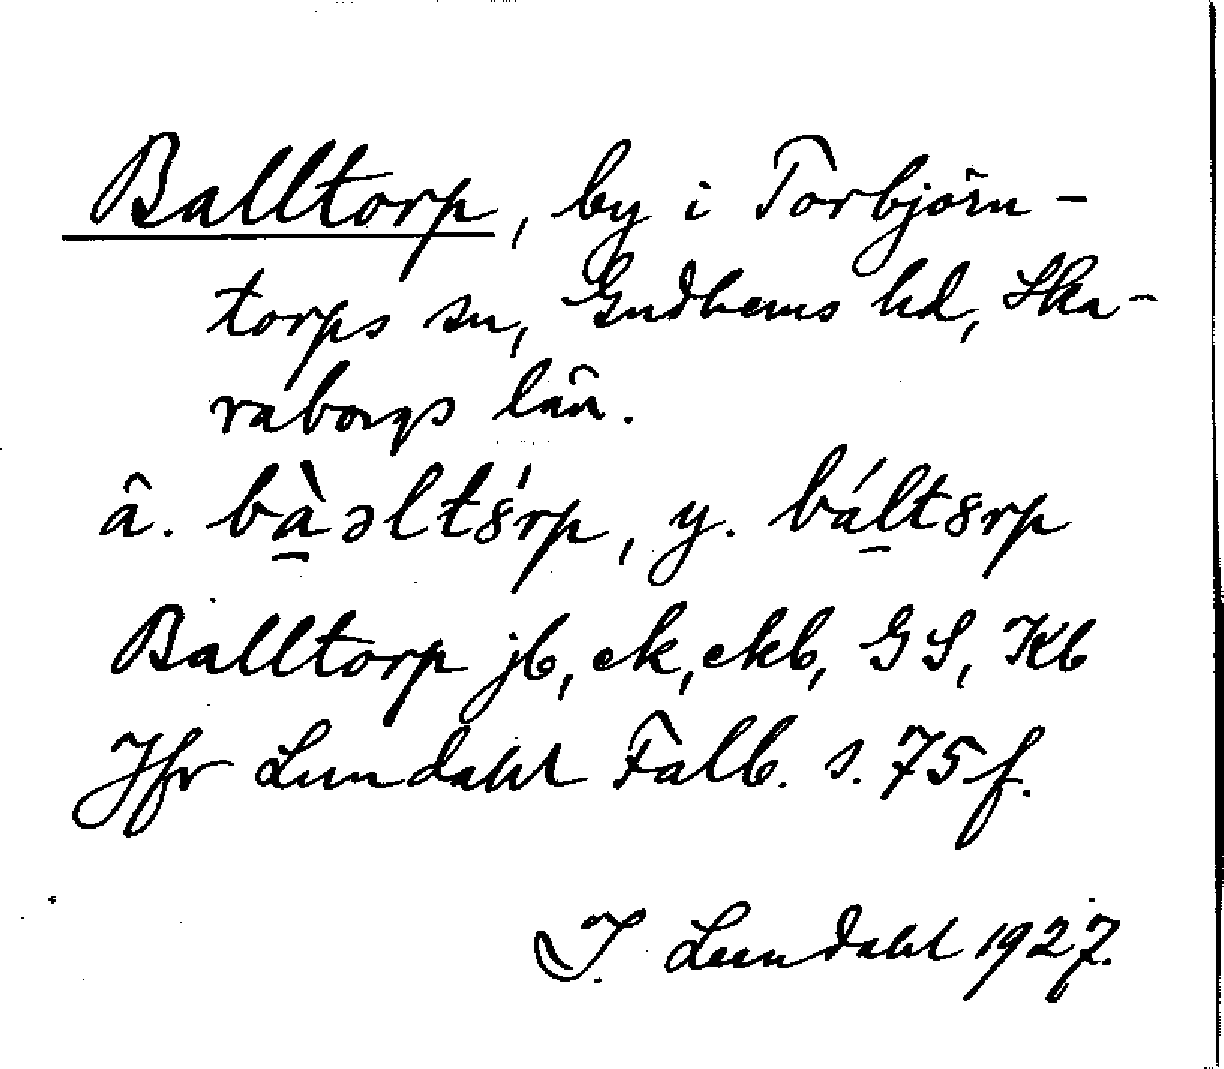 Balltorp, by i Torbjörn-
torps sn, Gudhems hd, Ska-
raborgs län.
ä. bàəltȣ́rp, y. báltȣrp
Balltorp jb, ek, ekb, GS, Kb
Jfr Lundahl Falb. s. 75 f.
I. Lundahl 1927.